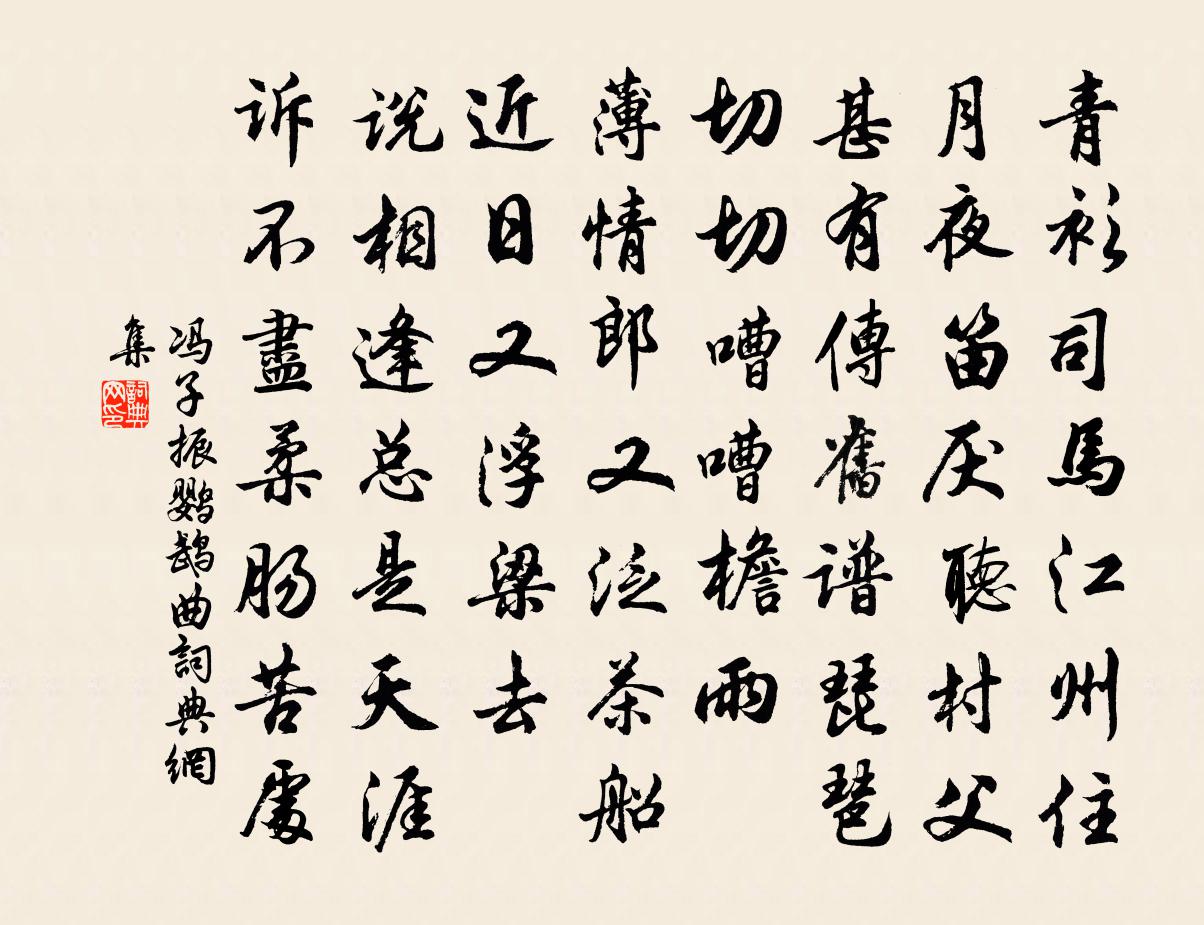 青衫司馬江州住
月夜笛厌聽村父
甚有傳舊谱琵琶
切切嘈嘈檐雨
薄情郎又泛茶船
近日又浮梁去
说相逢总是天涯
诉不盡柔肠苦處
冯子振鹦鹉曲詞典網
集
詞典网印